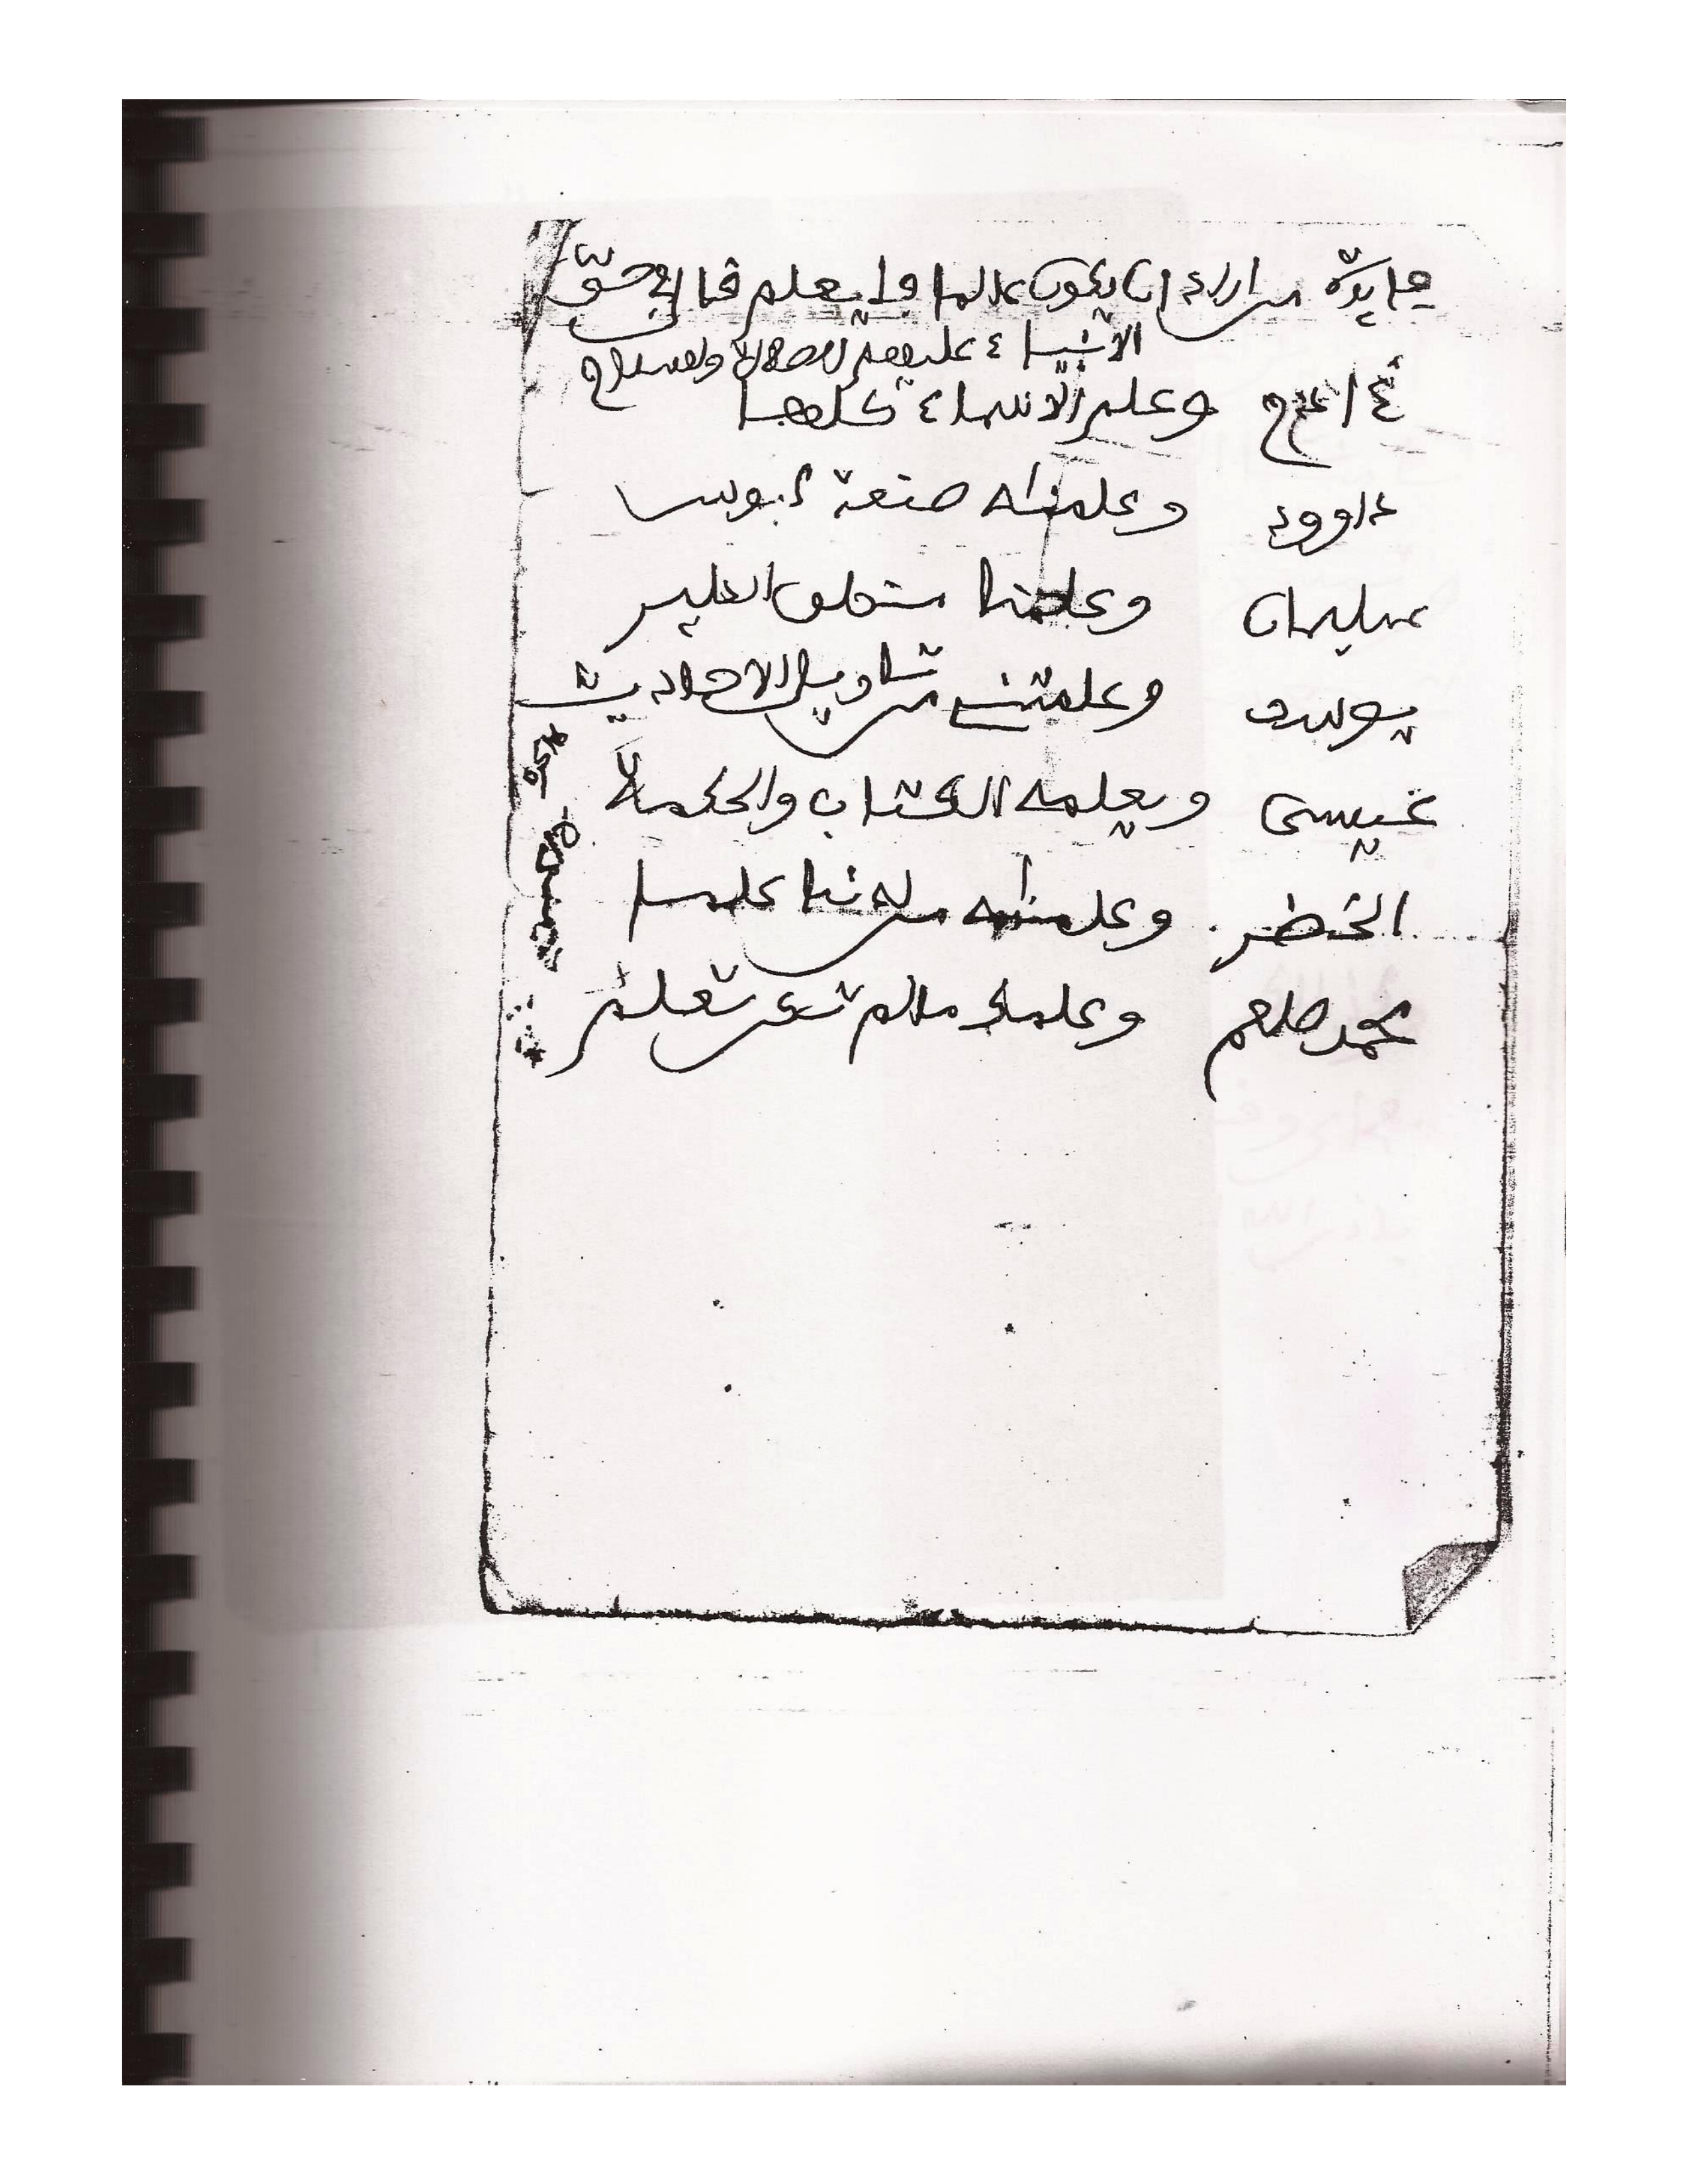 فايدة من اراد ان يكون عالما فليعلم ما قال في حق
الانبياء عليهم الصلاة والسلام
ءادم وعلم الاسماء كلها
داوود وعلمناه صنعة لبوس
سليمان وعلمنا منطق الطير
يوسف وعلمتني من تاويل الاحاديث
عيسى ويعلمه الكتاب والحكمة
الخضر وعلمناه من لدنا علما
محمد صلعم وعلمك مالم تكن تعلم